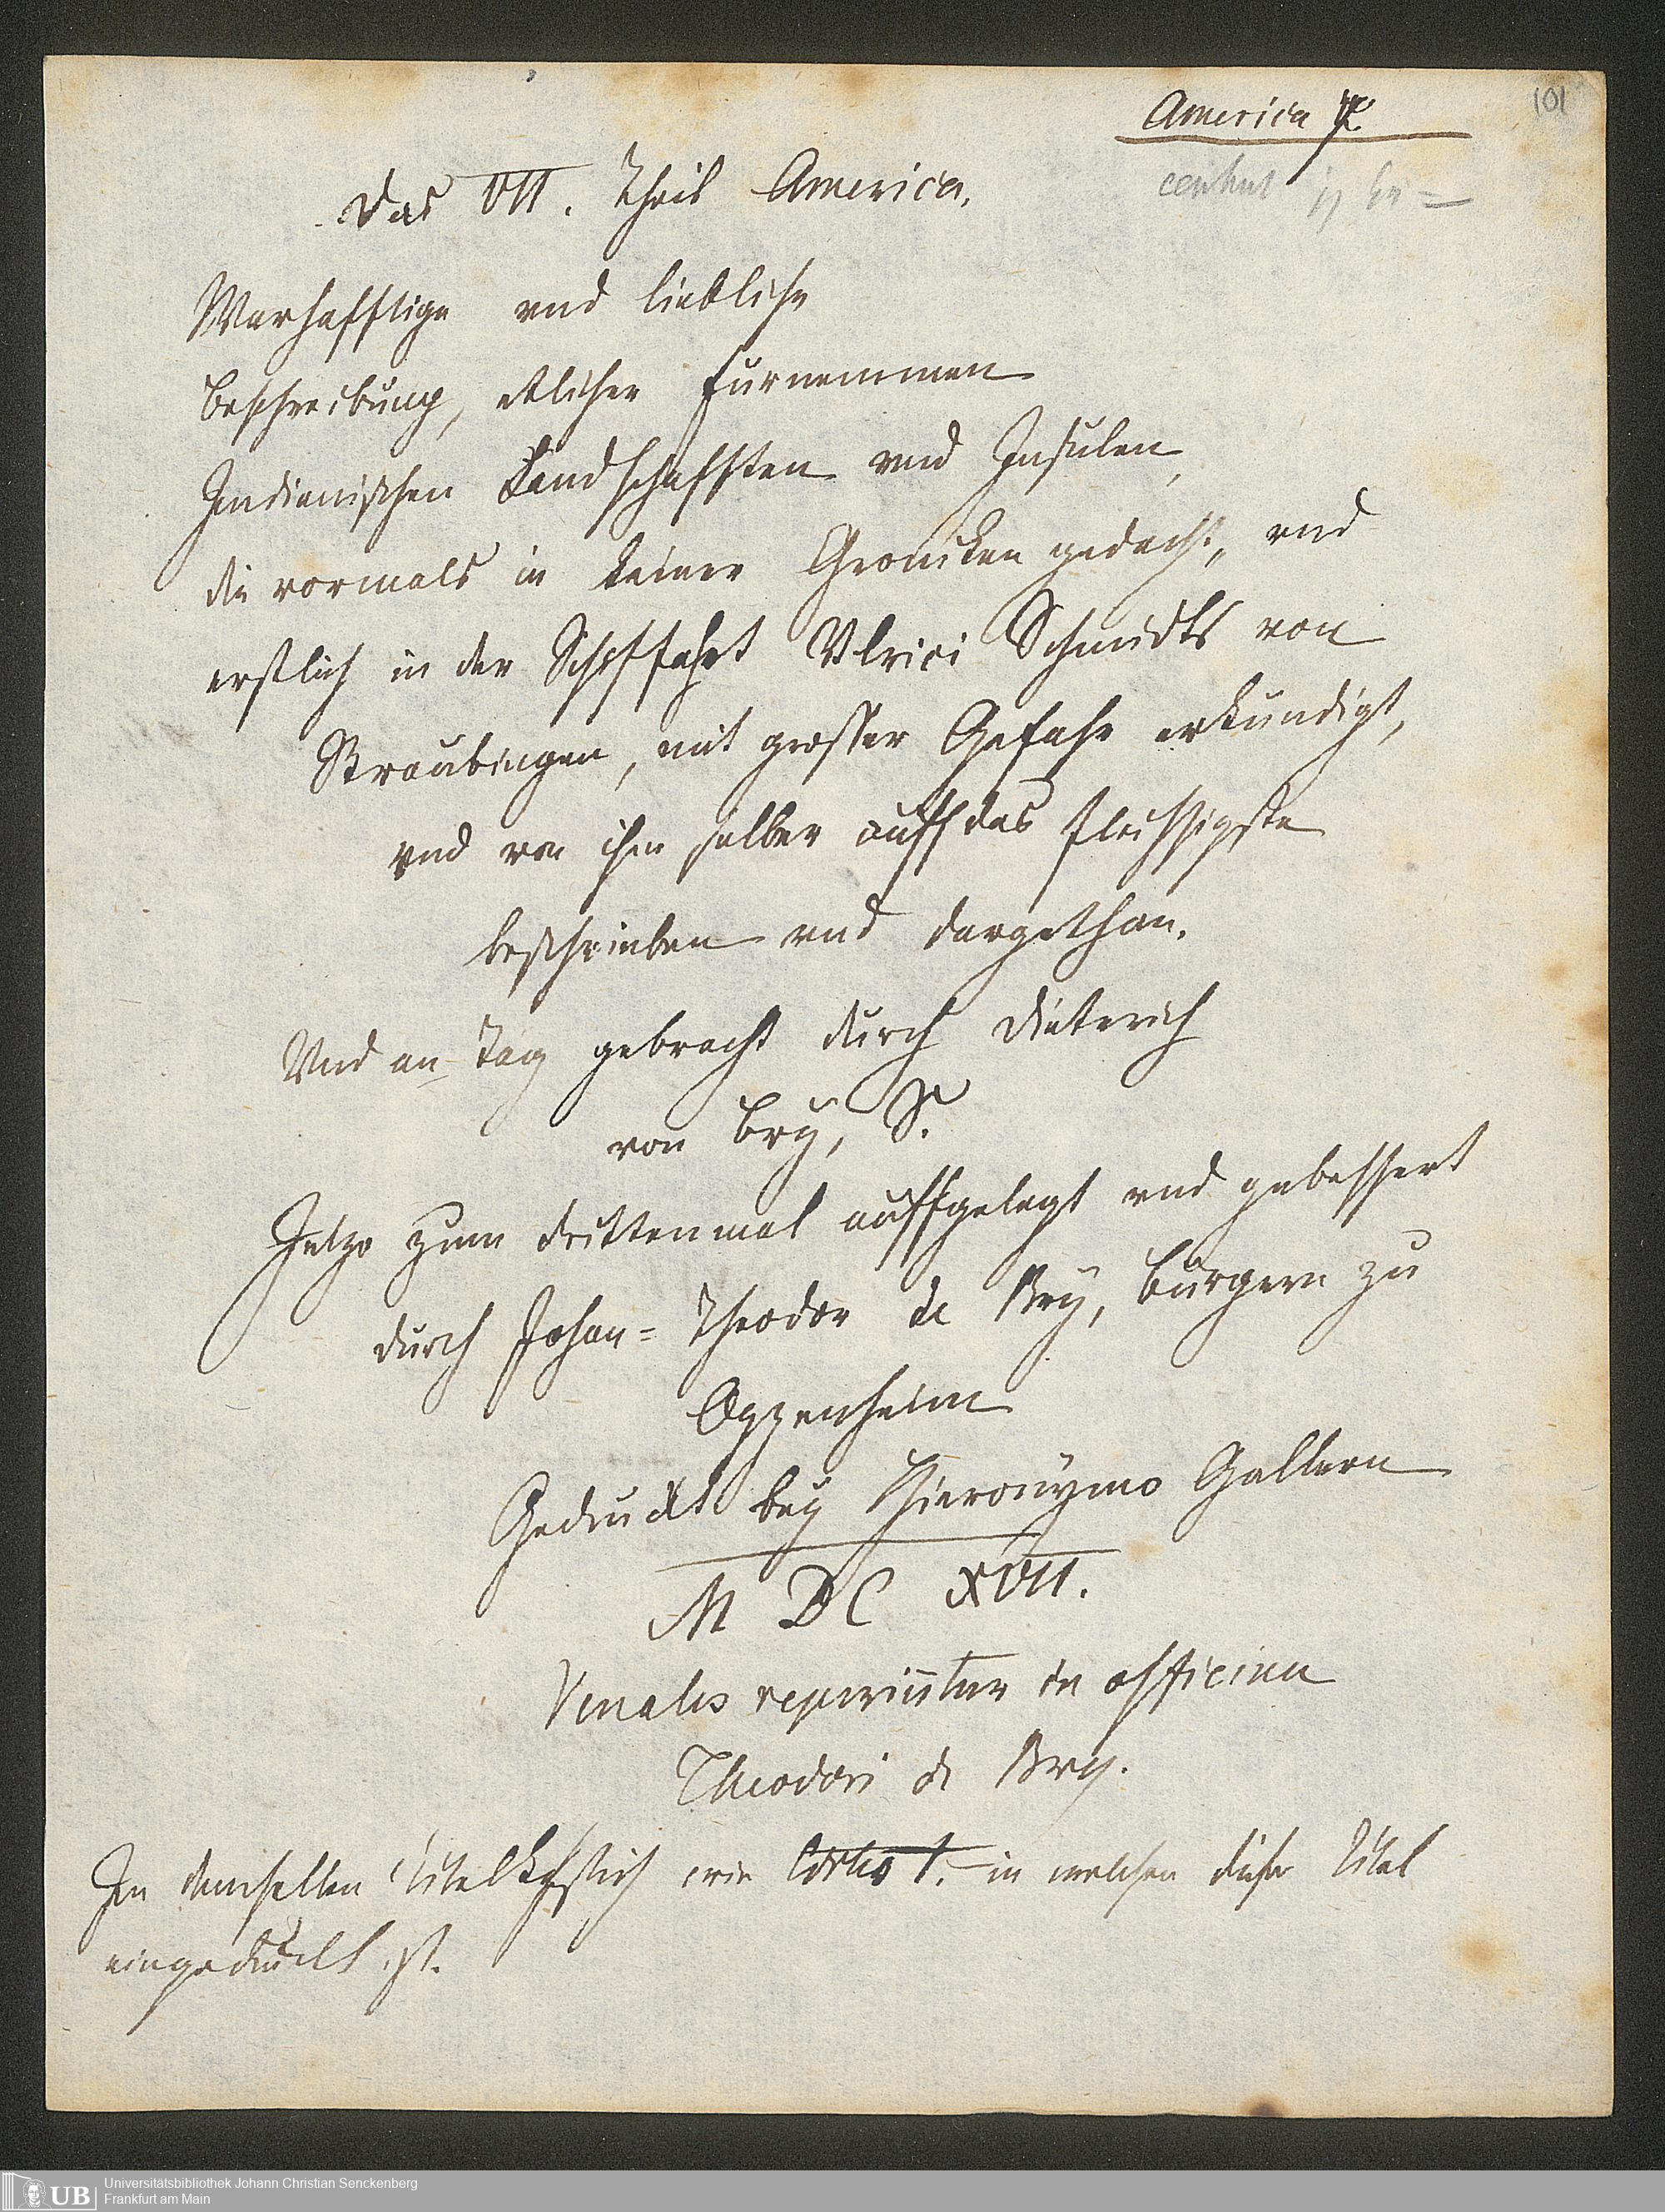 101
America
Das VII. Theil America.
Warhafftige vnd liebliche
Beschreibung, etlicher furnemmen
Indianischen Landschafften vnd Insulen,
die vormals in keiner Croniken gedacht, vnd
erstlich in der Schiffahrt Vlrici Schmidts von
Straubingen, mit grosser Gefahr erkundigt,
vnd von ihm selber auff das fleissigste
beschrieben vnd dargethan.
Vnd an Tag gebracht durch Dieterich
von Bry, S.
Jetzo zum drittenmal auffgelegt vnd gebessert
durch Johan= Theodor de Bry, Burgern zu
Oppenheim
Gedruckt bey Hieronymo Gallern
M DC XVII.
Venales reperiūtur in officina
Theodori de Bry.
In demselben Titelkpfstich wie in welchen dieser Titel
eingedruckt ist.
UB Universitätsbibliothek Johann Christian Senckenberg
Frankfurt am Main